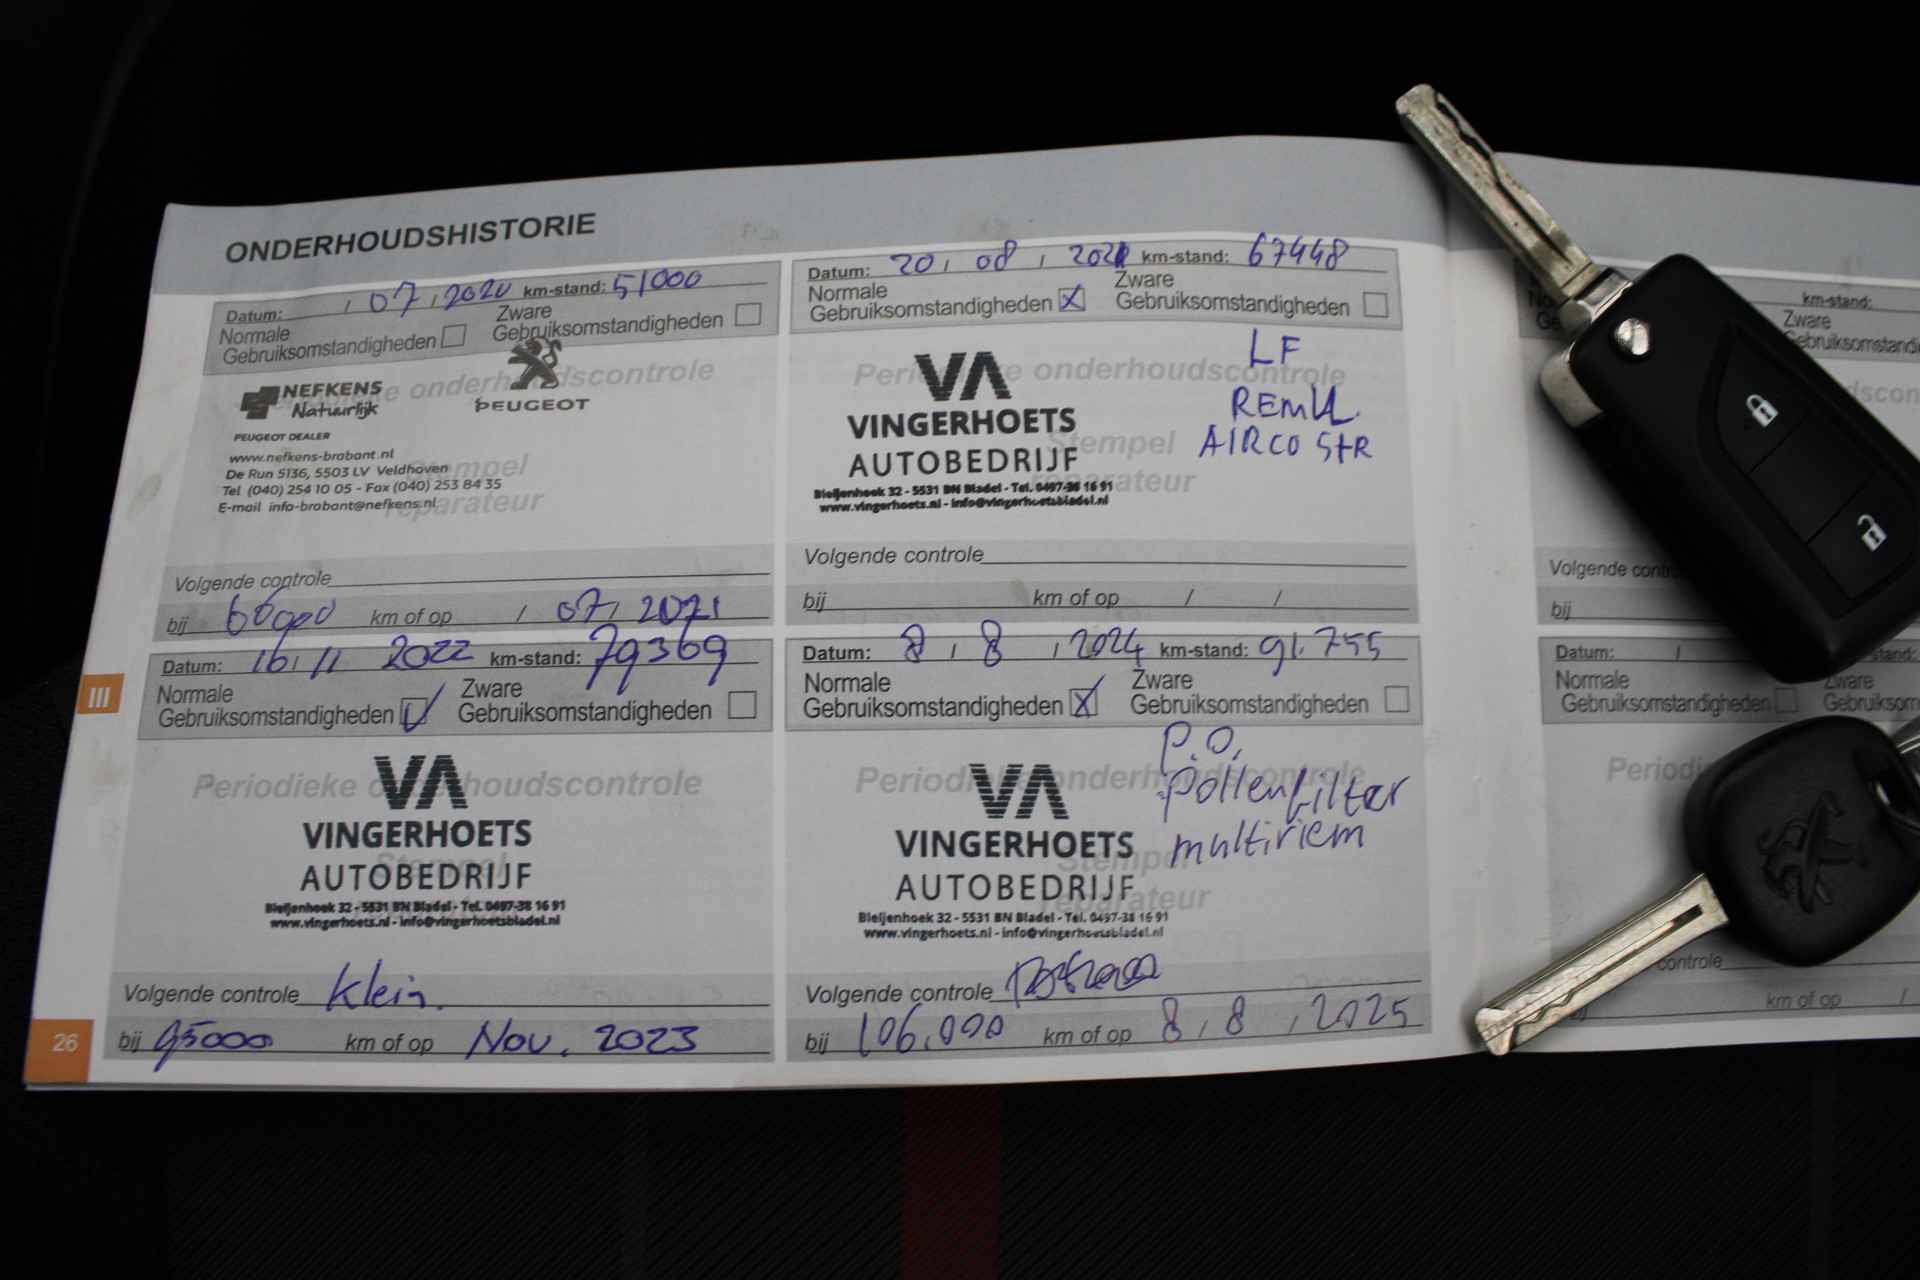 ONDERHOUDSHISTORIE
Datum: / 07 / 2020 km-stand: 51000
Normale Gebruiksomstandigheden Zware Gebruiksomstandigheden
Periodieke onderhoudscontrole
NEFKENS
Natuurlijk
PEUGEOT
PEUGEOT DEALER
www.nefkens-brabant.nl
De Run 5136, 5503 LV Veldhoven
Tel (040) 254 10 05 - Fax (040) 253 84 35
E-mail info-brabant@nefkens.nl
Stempel
reparateur
Volgende controle
bij 66000 km of op / 07 / 2021
Datum: 20 / 08 / 2021 km-stand: 67448
Normale Gebruiksomstandigheden X Zware Gebruiksomstandigheden
Periodieke onderhoudscontrole
LF
REMVL.
AIRCO STR
VA
VINGERHOETS
AUTOBEDRIJF
Bleijenhoek 32 - 5531 BN Bladel - Tel. 0497-38 16 91
www.vingerhoets.nl - info@vingerhoetsbladel.nl
Stempel
reparateur
Volgende controle
bij km of op / /
Datum: 16 / 11 2022 km-stand: 79369
Normale Gebruiksomstandigheden Zware Gebruiksomstandigheden
Periodieke onderhoudscontrole
VA
VINGERHOETS
AUTOBEDRIJF
Bleijenhoek 32 - 5531 BN Bladel - Tel. 0497-38 16 91
www.vingerhoets.nl - info@vingerhoetsbladel.nl
Stempel
Volgende controle Klein.
bij 95000 km of op Nov. 2023
Datum: 8 / 8 / 2024 km-stand: 91.755
Normale Gebruiksomstandigheden X Zware Gebruiksomstandigheden
Periodieke onderhoudscontrole
P.O.
pollenfilter
multiriem
VA
VINGERHOETS
AUTOBEDRIJF
Bleijenhoek 32 - 5531 BN Bladel - Tel. 0497-38 16 91
www.vingerhoets.nl - info@vingerhoetsbladel.nl
Stempel
reparateur
Volgende controle
bij 106.000 km of op 8 / 8 / 2025
III
26
km-stand:
Zware
Gebruiksomstandi
Volgende contr
bij
Datum: / stand:
Normale Zware
Gebruiksomstandigheden Gebruiksom
Period
controle
km of op /